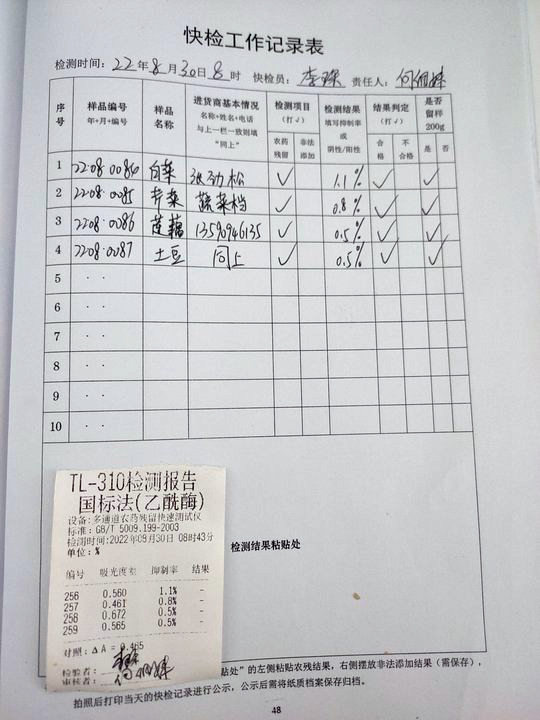 快检工作记录表
检测时间：22年8月30日8时 快检员：李琛 责任人：何佩婷
序号 样品编号 年+月+编号 样品名称 进货商基本情况 名称+姓名+电话 与上一栏一致则填“同上” 检测项目（打√） 检测结果 填写抑制率或阴性/阳性 结果判定（打√） 是否留样200g
农药残留 非法添加 合格 不合格 是 否
1 2208·0084 白菜 张劲松 √ 1.1% √ √
2 2208·0085 芹菜 蔬菜档 √ 0.8% √ √
3 2208·0086 莲藕 13590946135 √ 0.5% √ √
4 2208·0087 土豆 同上 √ 0.5% √ √
5 · ·
6 · ·
7 · ·
8 · ·
9 · ·
10 · ·
检测结果粘贴处
TL-310检测报告
国标法(乙酰酶)
设备:多通道农药残留快速测试仪
标准:GB/T 5009.199-2003
检测时间:2022年09月30日 08时43分
单位:%
编号 吸光度差 抑制率 结果
256 0.560 1.1% -
257 0.461 0.8% -
258 0.672 0.5% -
259 0.565 0.5% -
对照:ΔA =
检验者: 李琛
审核者: 何佩婷
粘贴处”的左侧粘贴农残结果，右侧摆放非法添加结果（需保存），
拍照后打印当天的快检记录进行公示，公示后需将纸质档案保存归档。
48